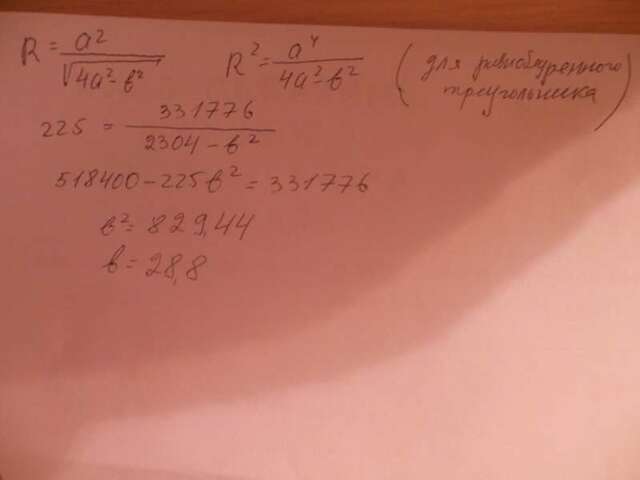 R = a² / √(4a² - в²)    R² = a⁴ / (4a² - в²)    (для равнобедренного треугольника)
225 = 331776 / (2304 - в²)
518400 - 225в² = 331776
в² = 829,44
в = 28,8